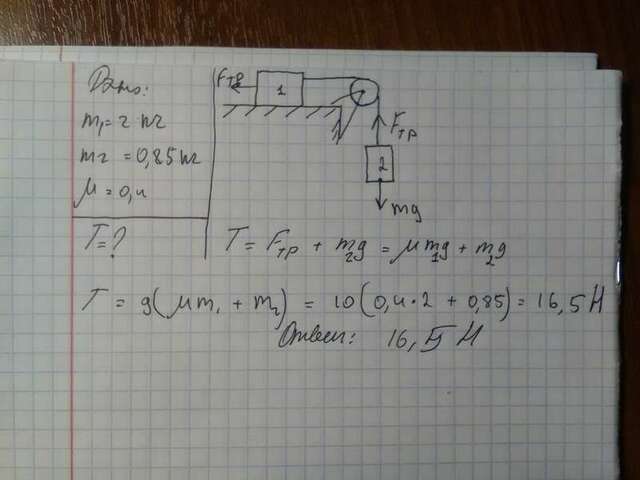 Дано:
m₁ = 2 кг
m₂ = 0,85 кг
μ = 0,4
T = ?
Fтр
1
Fтр
2
mg
T = Fтр + m₂g = μm₁g + m₂g
T = g(μm₁ + m₂) = 10(0,4·2 + 0,85) = 16,5 Н
Ответ: 16,5 Н